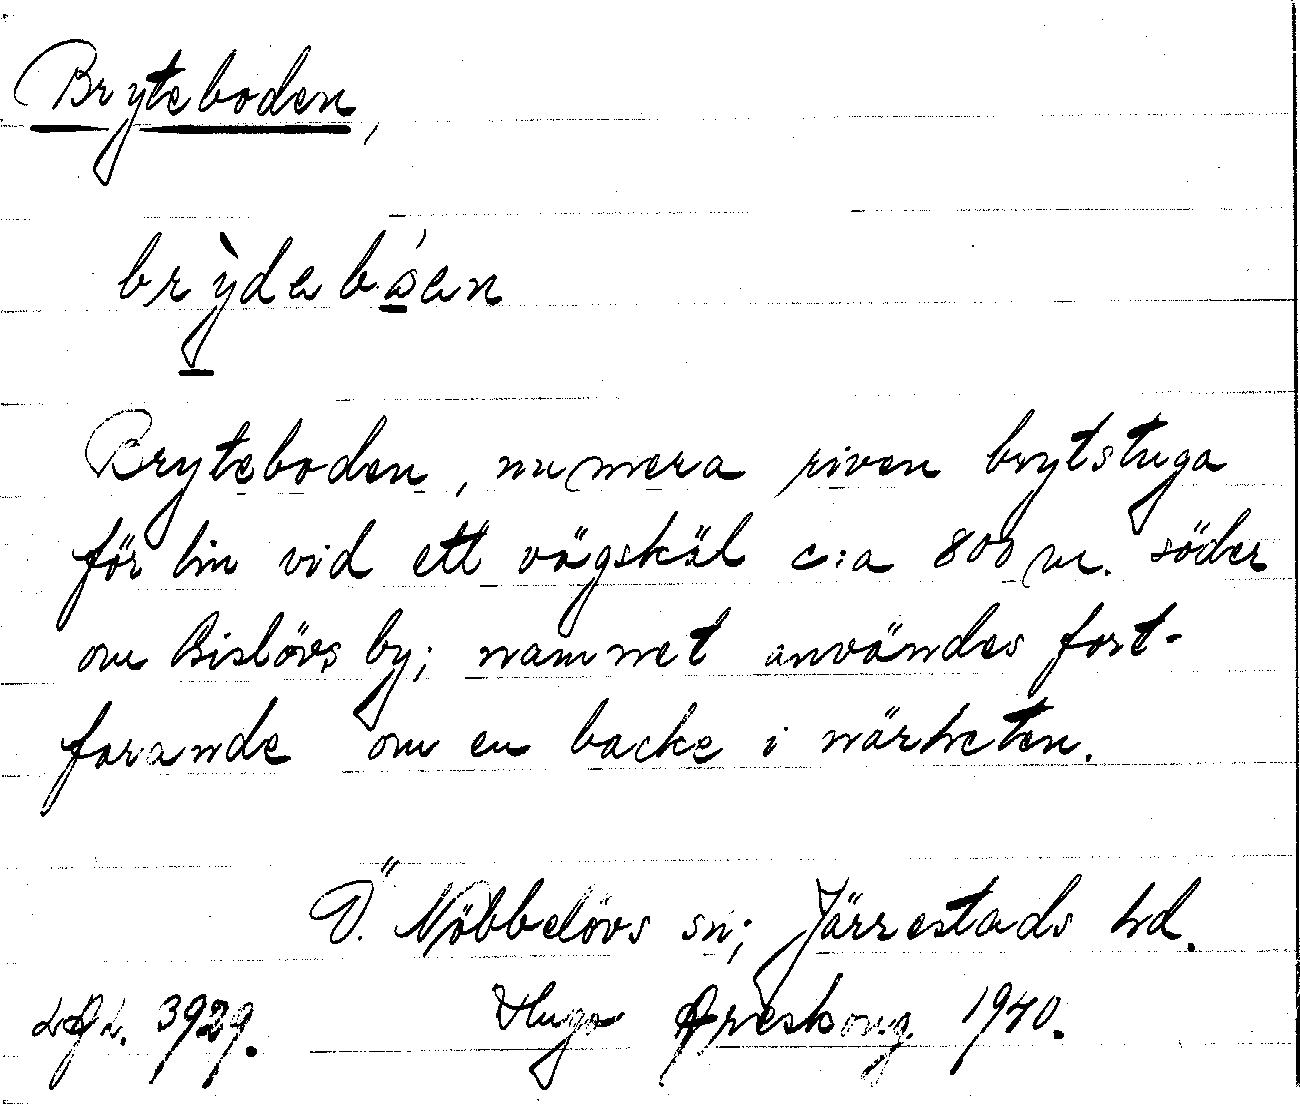 Bryteboden,
brỳdabóan
Bryteboden, numera riven brytstuga
för lin vid ett vägskäl c:a 800 m. söder
om Bislövs by; namnet användes fort-
farande om en backe i närheten.
Ö. Nöbbelövs sn; Järrestads hd.
LAL. 3929. Hugo Areskoug 1940.